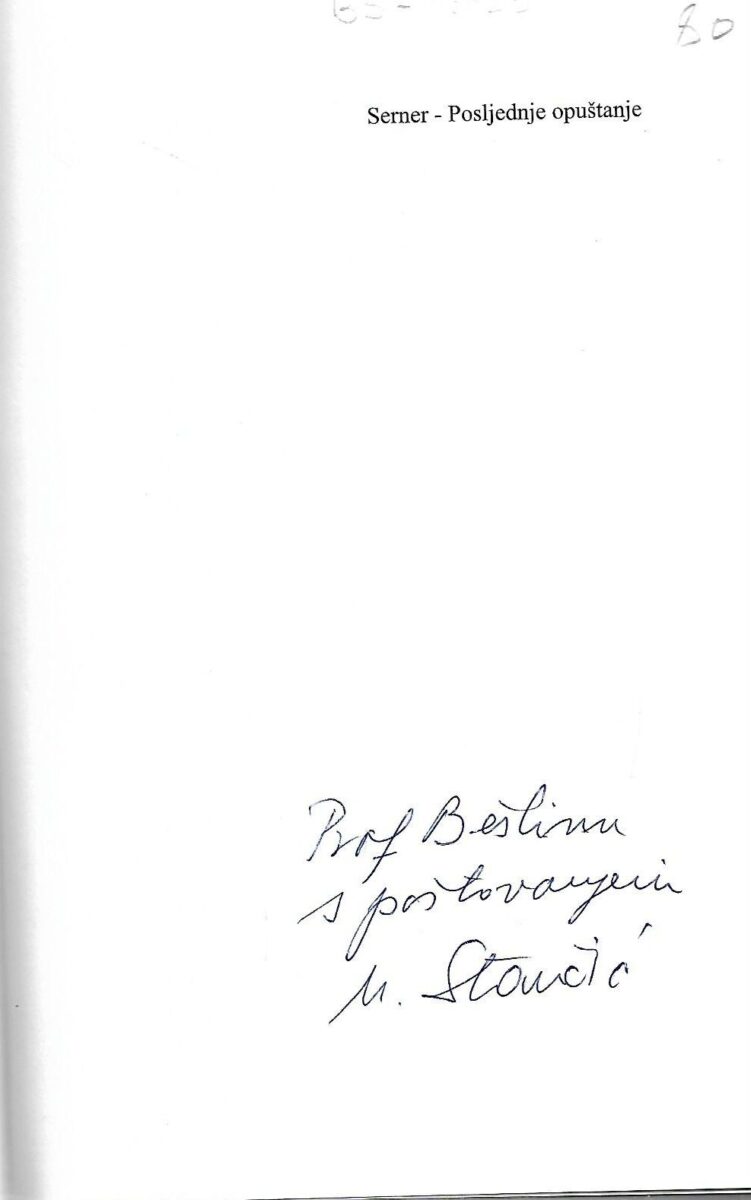 80
Serner - Posljednje opuštanje
Prof Bešlinu
s poštovanjem
M. Stančić